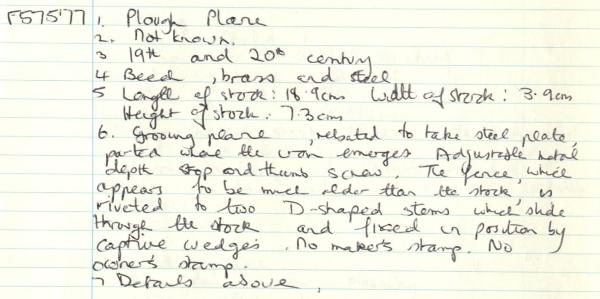 FS75'77 1. Plough Plane
2. Not known.
3 19th and 20th century
4 Beech, brass and steel
5 Length of stock: 18.9cm Width of stock: 3.9cm
Height of stock: 7.3cm
6. Grooving plane, rebated to take steel plate,
parted where the iron emerges Adjustable metal
depth stop and thumb screw. The fence, which
appears to be much older than the stock, is
riveted to two D-shaped stems which slide
through the stock and fixed in position by
captive wedges. No maker's stamp. No
owner's stamp.
7 Details above.